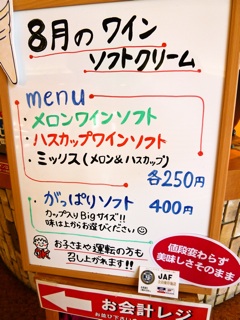 8月の ワイン
ソフトクリーム
menu
・メロンワインソフト
・ハスカップワインソフト
・ミックス(メロン&ハスカップ)
各250円
・がっぱりソフト 400円
カップ入りBigサイズ!!
味は上からお選びください
お子さまや運転の方も
召し上がれます!!
値段変わらず
美味しさそのまま
JAF
お会計レジ